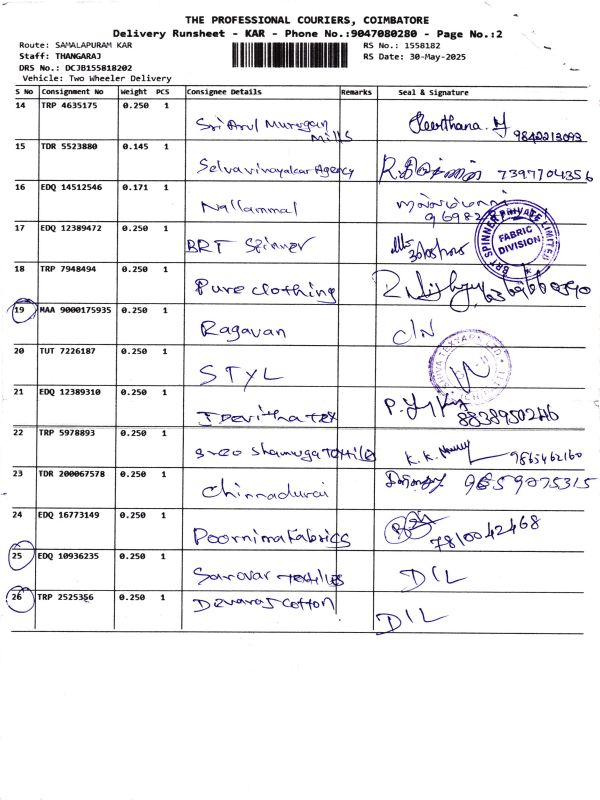 THE PROFESSIONAL COURIERS, COIMBATORE
Delivery Runsheet - KAR - Phone No.:9047080280 - Page No.:2
Route: SAMALAPURAM KAR
RS No.: 1558182
Staff: THANGARAJ
RS Date: 30-May-2025
DRS No.: DCJB155818202
Vehicle: Two Wheeler Delivery
S No Consignment No Weight PCS Consignee Details Remarks Seal & Signature
14 TRP 4635175 0.250 1
Sri Arul Murugan Mills
9842213093
15 TDR 5523880 0.145 1
Selvavinayakar Agency 7397704356
16 EDQ 14512546 0.171 1
Nallammal
17 EDQ 12389472 0.250 1
BRT Spinner
BRT SPINNERS PRIVATE LIMITED
FABRIC DIVISION
18 TRP 7948494 0.250 1
Pure clothing
19 MAA 9000175935 0.250 1
Ragavan C/N
20 TUT 7226187 0.250 1
STYL
21 EDQ 12389310 0.250 1
22 TRP 5978893 0.250 1
9865462160
23 TDR 200067578 0.250 1
Chinnadurai 9659075315
24 EDQ 16773149 0.250 1
Poornima Fabrics 7810042468
25 EDQ 10936235 0.250 1
Sarovar textiles D/L
26 TRP 2525356 0.250 1
Devaraj cotton D/L